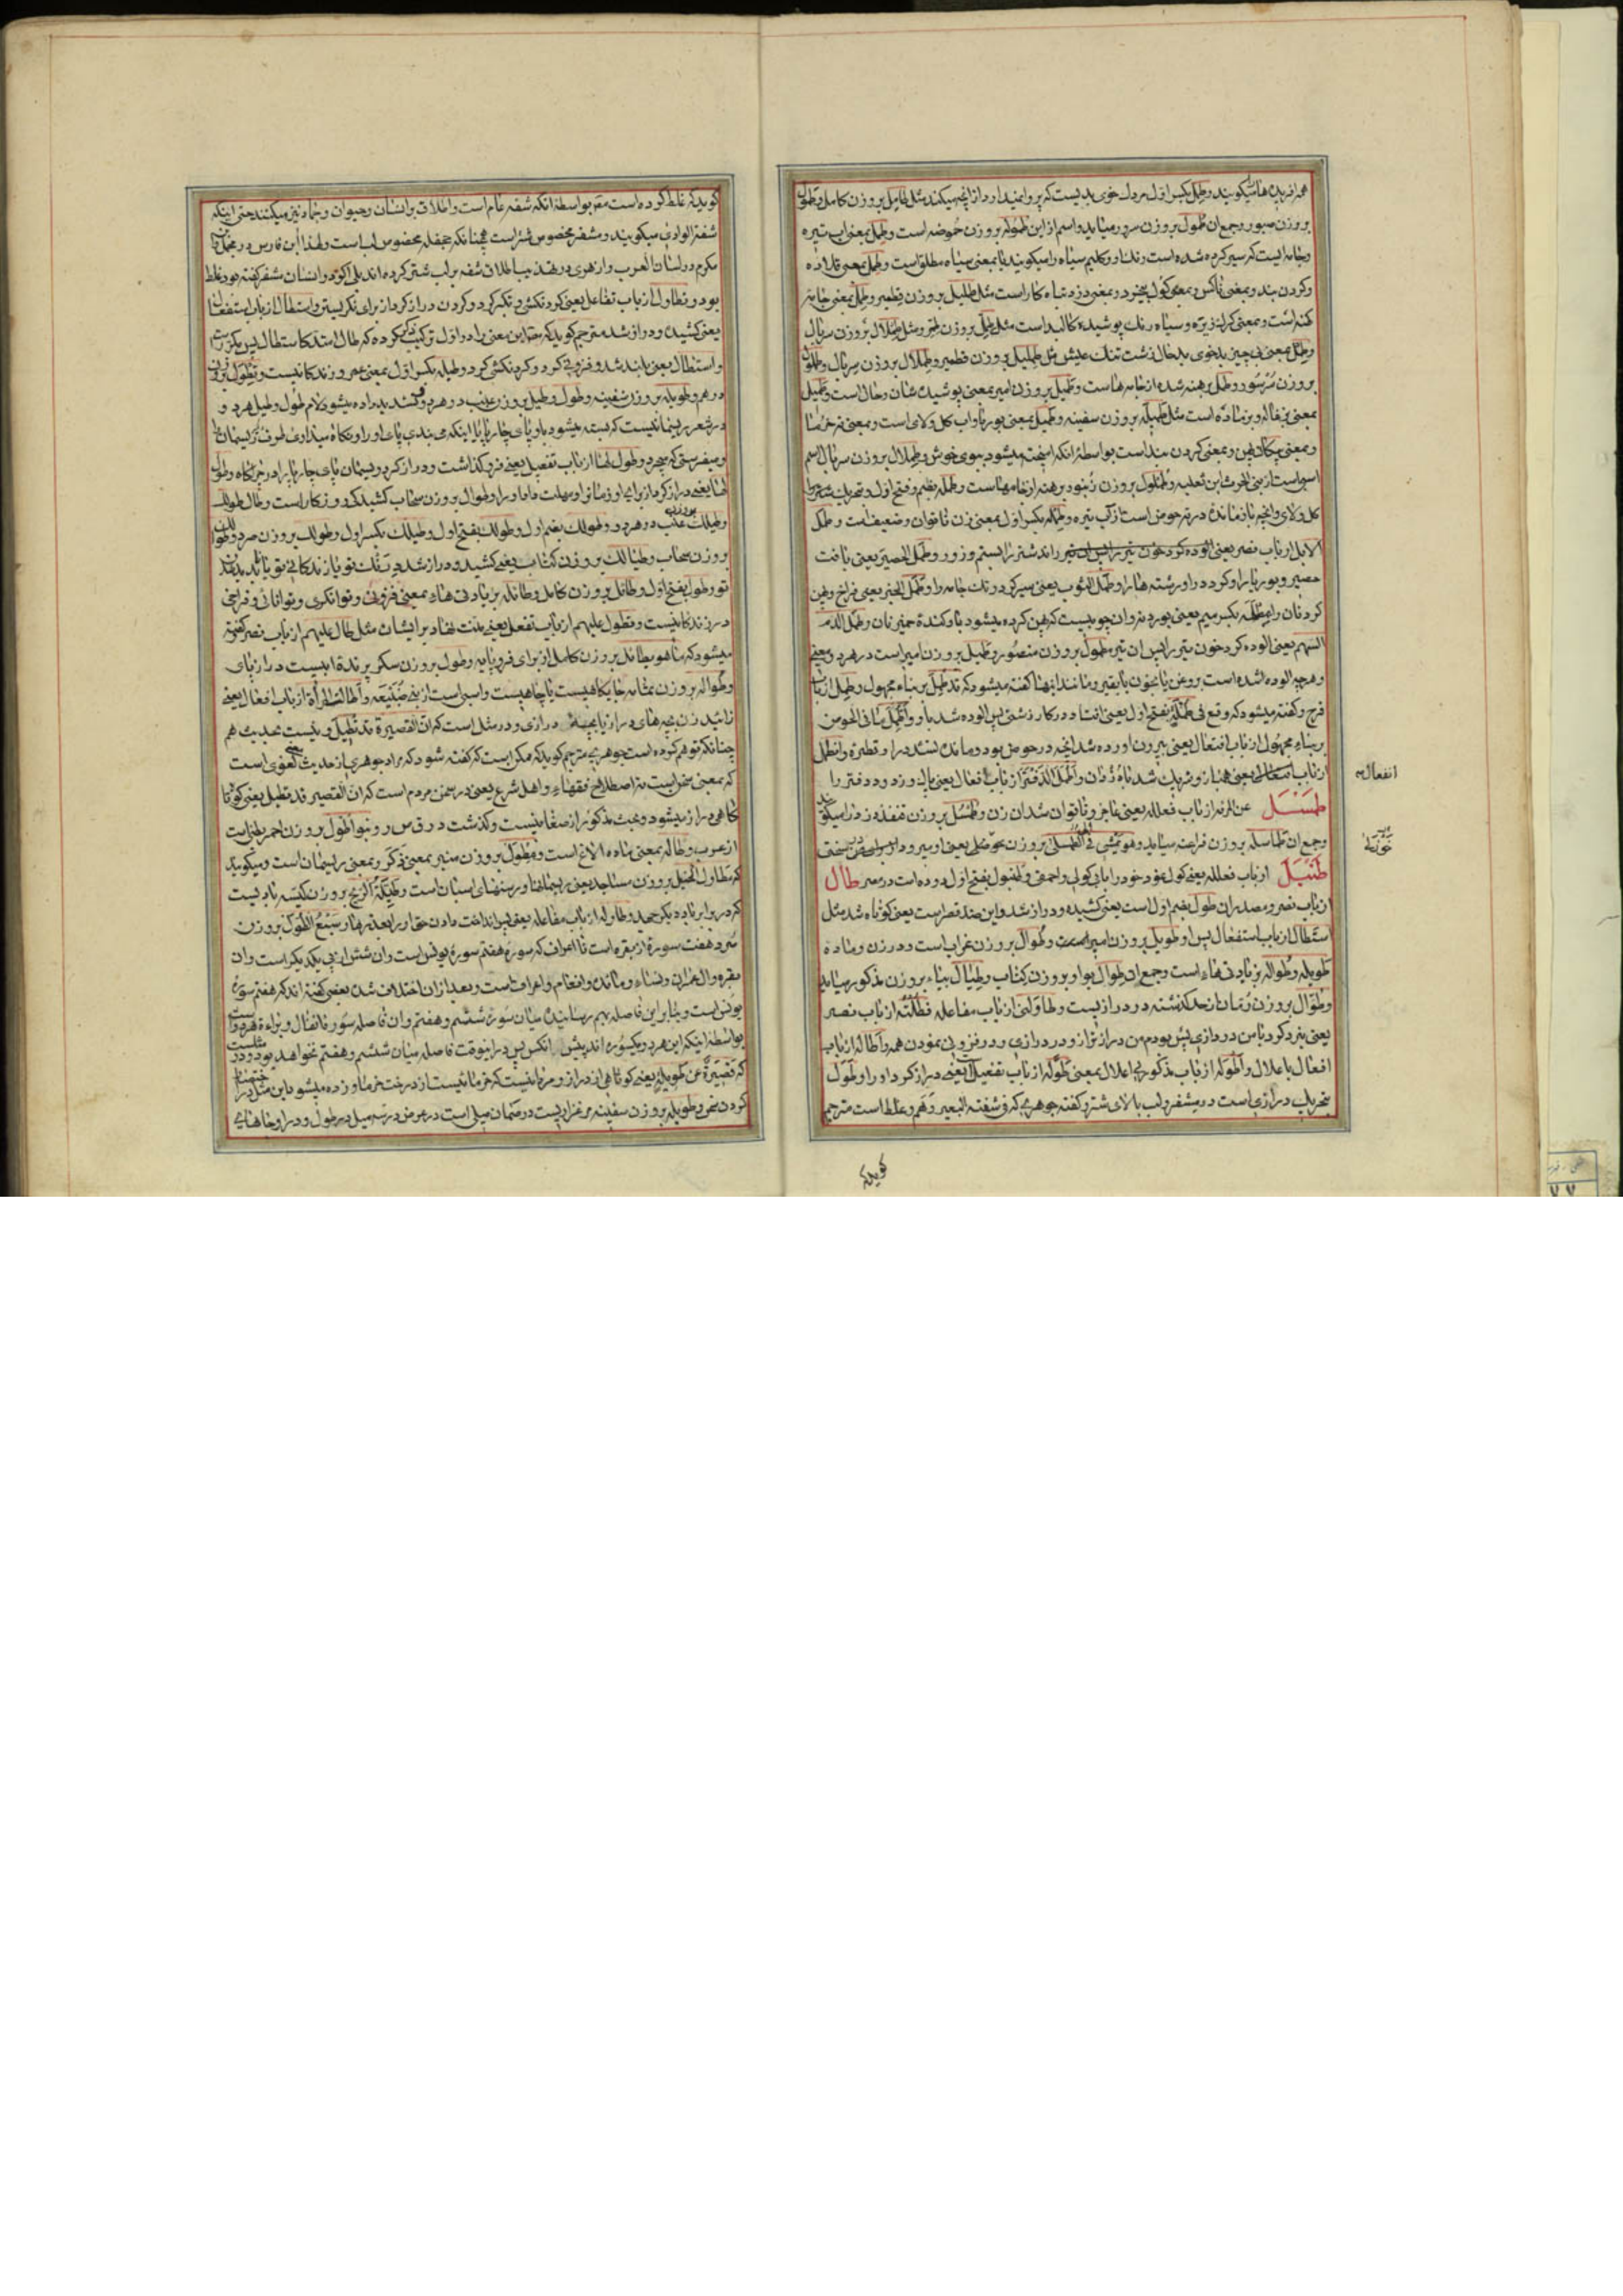 همه افریده‌ها میکویند وطمل بکسر اول مردک خوی بدیست که پروا نمیدارد از انچه میکند مثل طامل بروزن کامل وطمول
بروزن صبور وجمع ان طمول بروزن سرور میاید واسم از این طموله بروزن حموضه است وطمل بمعنی اب تیره
وجامه ایست که سیر کرده شده است رنک او وکلیم سیاه را میکویند یا بمعنی سیاه مطلق است وطمل بمعنی قلاده
وکردن بند وبمعنی ناکس وبمعنی کول بیخرد وبمعنی دزد تباه کار است مثل طملیل بروزن قطمیر وطمل بمعنی جامه
کهنه است وبمعنی کرک تیره وسیاه رنک پوشیده کالبد است مثل طمل بروزن طمر ومثل طملال بروزن سربال
وطمل بمعنی بی چیز بدخوی بدحال زشت تنک عیش مثل طملیل بروزن قطمیر وطملال بروزن سربال وطملول
بروزن سرسور وطمل برهنه شده از جامه هاست وطمیل بروزن امیر بمعنی پوشیده شان وحال است وطمیل
بمعنی بزغاله وبز ماده است مثل طمیله بروزن سفینه وطمیل بمعنی بوریا واب کل ولای است وبمعنی
وبمعنی پیکان پهن وبمعنی کردن بند است بواسطه انکه امیخته میشود ببوی خوش وطملال بروزن سربال اسم
اسبی است از بنی الحرث ابن ثعلبه وطملول بروزن زنبور برهنه از جامهاست وطمله بضم وفتح اول وتحریک
کل ولای وانچه بازمانده در ته حوض است از اب تیره وطمله بکسر اول بمعنی زن ناتوان وضعیف است وطمل
الابل از باب نصر یعنی راند شتر را بستم وزور وطمل الحصیر یعنی بافت
حصیر وبوریا را وکرد در او رشته ها را وطمل الثوب یعنی سیر کرد رنک جامه را وطمل الخبز یعنی فراخ وپهن
کرد نان را مطمله بکسر میم یعنی بورد نه وان چوبیست که پهن کرده میشود باو کنده خمیر نان وطمل الدم
السهم یعنی الوده کرد خون تیر را پس ان تیر مطمول بروزن منصور وطمیل بروزن امیر است در هر دو معنی
وهر چه الوده شده است بروغن یا بخون یا بقیر ومانند اینها کفته میشود که قد طمل بر بناء مجهول وطمل از باب
فرح وکفته میشود که وقع فی طمله بفتح اول یعنی افتاد در کار زشتی پس الوده شد باو واطمل ما فی الحوض
بر بناء مجهول از باب افتعال یعنی بیرون اورده شد انچه در حوض بود ومانده نشد در او قطره وانطمل
از باب یعنی هنباز وشریک شد با دزدان واطمل الدفتر از باب افعال یعنی پاک ورزدود دفتر را
طمسل عن المرأه از باب فعلله یعنی عاجز وناتوان شد از زن وطمسل بروزن قنفذ دزد را میکویند
وجمع ان طماسله بروزن فراعنه میاید وهو یمشی فی الطمسلی بروزن حوصلی یعنی او میرود
طنبل از باب فعلله یعنی کول نمود خود را با بی کولی واحمقی وطنبول بفتح اول ده است در مصر طال
از باب نصر ومصدر ان طول بضم اول است یعنی کشیده ودراز شد واین ضد قصر است یعنی کوتاه شد مثل
استطال از باب استفعال پس او طویل بروزن امیر است وطوال بروزن غراب است ودر زن وماده
طویله وطواله بزیادتی هاء است وجمع ان طوال بواو بروزن کتاب وطیال بیاء بروزن مذکور میاید
وطوال بروزن رمان از حد کذشته در درازیست وطاولنی از باب مفاعله فطلته از باب نصر
یعنی نبرد کرد با من در درازی پس بودم من درازتر از او در درازی ودر فزونی نمودن همه واطاله از باب
افعال باعلال واطوله از باب مذکور بی اعلال بمعنی طوله از باب تفعیل است یعنی دراز کرد او را وطول
بتحریک درازی است در مشفر ولب بالای شتر وکفته جوهری که فی شفة البعیر وهم وغلط است مترجم
کوید که
انفعال
کوید که غلط کرده است مقر بواسطه انکه شفه عام است واطلاق بر انسان وحیوان وجماد نیز میکنند حتی اینکه
شفة الوادی میکویند ومشفر مخصوص شتر است همچنانکه جحفله مخصوص اسب است ولهذا ابن فارس در مجمل وابن
مکرم در لسان العرب وازهری در تهذیب اطلاق شفه بر لب شتر کرده اند بلی اکر در انسان مشفر کفته بود غلط
بود وتطاول از باب تفاعل یعنی کرد نکشی وتکبر کرد وکردن دراز کرد از برای نکریستن واستطال از باب استفعال
یعنی کشیده ودراز شد مترجم کوید که مصا این معنی را در اول ترکیب ذکر کرده که طال امتد کاستطال پس مکرر است
واستطال یعنی بلند شد وفزونی کرد وکردنکشی کرد وطیله بکسر اول بمعنی عمر وزندکانیست وتطول بروزن
درهم وطویله بروزن سفینه وطول وطیل بروزن عنب در هر دو
در شعر ریسمانیست که بسته میشود باو پای چارپا یا اینکه می بندی پای او را ونکاه میداری طرف ریسمان را
ومیفرستی که بچرد وطول لها از باب تفعیل یعنی فرو کذاشت ودراز کرد ریسمان پای چارپا را در چراکاه وطول
لها یعنی دراز کرد از برای او زمانی او مهلت داد او را وطوال بروزن سحاب کشیدکی روزکار است وطال طولک
وطیلک بروزن عنب در هر دو وطولک بضم اول وطولک بفتح اول وطیلک بکسر اول وطولک بروزن صرد وطوالک
بروزن سحاب وطیالک بروزن کتاب یعنی کشید ودراز شد درنک تو یا زندکانی تو یا
تو وطول بفتح اول وطائل بروزن کامل وطائله بزیادتی هاء بمعنی فزونی وتوانکری وتوانائی وفراخی
در زندکانیست وتطول علیهم از باب تفعل یعنی منت نهاد بر ایشان مثل طال علیهم از باب نصر کفته
میشود که ما هو بطائل بروزن کامل از برای فرومایه وطول بروزن سکر پرنده ابیست دراز پای
وطواله بروزن ثمامه جایکاهیست یا چاهیست واسبی است از بنی ضبیعه واطالت المرأة از باب افعال یعنی
زائید زن بچه های دراز یا بچه درازی ودر مثل است که ان القصیرة قد تطیل ونیست بحدیث هم
چنانکه توهم کرده است جوهری مترجم کوید که ممکن است که کفته شود که مراد جوهری از حدیث معنی لغوی است
که بمعنی سخن است نه اصطلاح فقهاء واهل شرع یعنی در سخن مردم است که ان القصیره قد تطیل یعنی کوتاه
کاهی دراز میشود وبحث مذکور از صغانیست وکذشت در ق ص ر وبنو اطول بروزن احمر بطنیست
از عرب وطاله بمعنی ماده الاغ است ومطول بروزن منبر بمعنی ذکر وبمعنی ریسمان است ومیکویند
که مطاول الخیل بروزن مساجد یعنی ریسمانها ورسنهای اسبان است وطیلة الریح بروزن کیسه بادیست
که در برابر باد دیکر جهد وطاوله از باب مفاعله یعنی پس انداخت دادن حق او را بعد ها وسبع الطول بروزن
صرد هفت سوره از بقره است تا اعراف که سوره هفتم سوره یونس است وان شش از پی یکدیکر است وان
بقره وال عمران ونساء ومائده وانعام واعراف است وبعد از ان اختلاف شده بعضی کفته اند که هفتم سوره
یونس است وبنابراین فاصله بهم رسانیده میان سوره ششم وهفتم وان فاصله سوره انفال وبراءة
بواسطه اینکه این هر دو یکسوره اند پیش انکس پس در اینوقت فاصله میان ششم وهفتم نخواهد بود ودر مثلست
که قصیرة عن طویلة یعنی کوتاهی از دراز ومراد اینست که خرمائیست از درخت خرما وزده میشود باین مثل در
کردن سخن وطویله بروزن سفینه مرغزاریست در صمان میلی است در عرض در سه میل در طول ودر او جاهائی